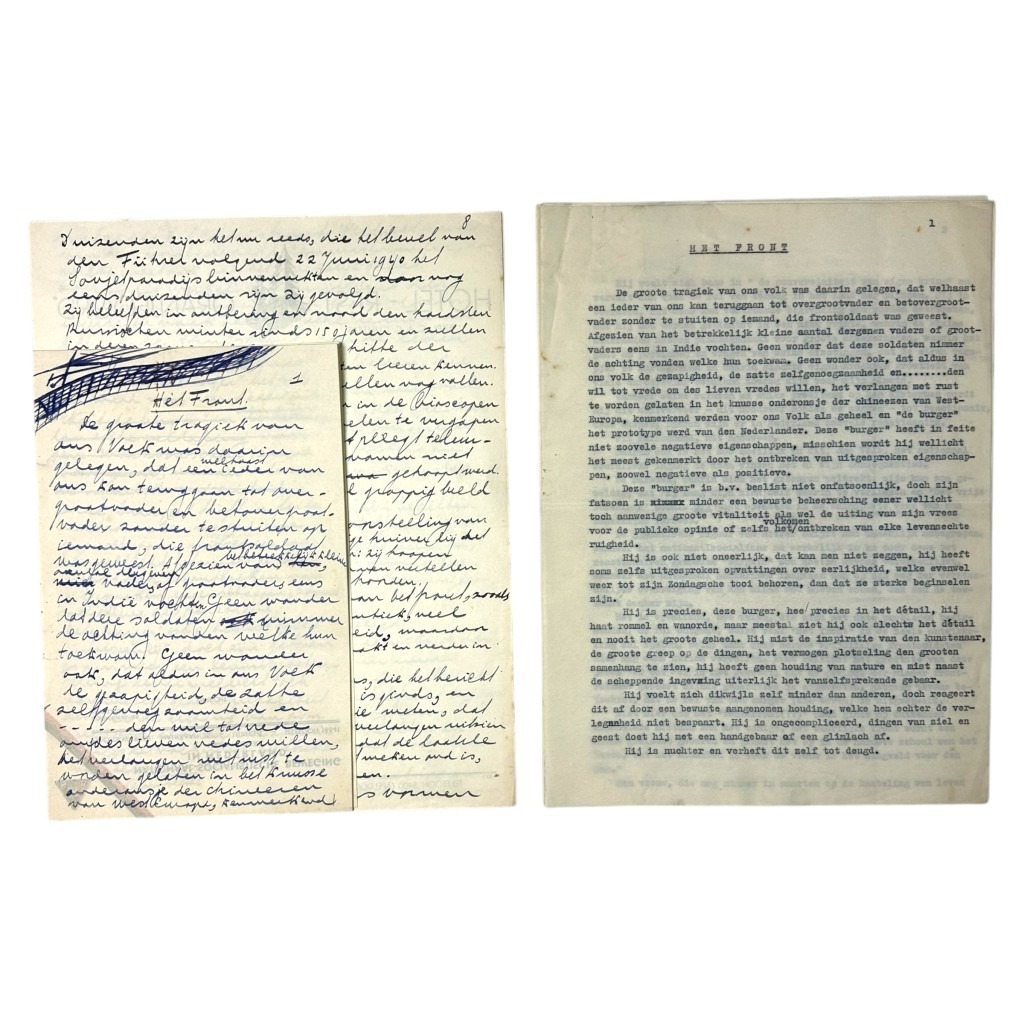 8
Duizenden zijn het nu reeds, die het bevel van
den Führer volgend 22 Juni 1940 het
Sovjetparadijs binnenrukten en nog
eens duizenden zijn zij gevolgd.
Zij beleefden in ontbering en nood den hardsten
Russischen winter sinds 150 jaren en zullen
in deren hitte der
leeren kennen.
vallen.
in de bioscopen
te vergapen
pleegt
niet
gehoopt werd.
grappig beeld
voorstelling van
bij het
zij hoopen
vertellen
aan het front, zooals
veel
waaraan
en verder in
, die het bericht
is ginds, en
meten, dat
verlangen
dat de laatste
is,
en.
vormen
1
Het Front.
De groote tragiek van
ons Volk was daarin
gelegen, dat welhaast een ieder van
ons kan teruggaan tot over-
grootvader en betovergroot-
vader zonder te stuiten op
iemand, die frontsoldaat
was geweest. Afgezien van het betrekkelijk kleine
aantal dergenen vaders of grootvaders eens
in Indië vochten. Geen wonder
dat deze soldaten nimmer
de achting vonden welke hun
toekwam. Geen wonder
ook, dat aldus in ons Volk
de gezapigheid, de zatte
zelfgenoegzaamheid en
...... den wil tot vrede
om des lieven vredes willen,
het verlangen met rust te
worden gelaten in het knusse
onderonsje der chineezen
van West Europa, kenmerkend
1
HET FRONT
De groote tragiek van ons volk was daarin gelegen, dat welhaast
een ieder van ons kan teruggaan tot overgrootvader en betovergroot-
vader zonder te stuiten op iemand, die frontsoldaat was geweest.
Afgezien van het betrekkelijk kleine aantal dergenen vaders of groot-
vaders eens in Indie vochten. Geen wonder dat deze soldaten nimmer
de achting vonden welke hun toekwam. Geen wonder ook, dat aldus in
ons volk de gezapigheid, de zatte zelfgenoegzaamheid en.........den
wil tot vrede om des lieven vredes willen, het verlangen met rust
te worden gelaten in het knusse onderonsje der chineezen van West-
Europa, kenmerkend werden voor ons Volk als geheel en "de burger"
het prototype werd van den Nederlander. Deze "burger" heeft in feite
niet zoovele negatieve eigenschappen, misschien wordt hij wellicht
het meest gekenmerkt door het ontbreken van uitgesproken eigenschap-
pen, noowel negatieve als positieve.
Deze "burger" is b.v. beslist niet onfatsoenlijk, doch zijn
fatsoen is minder een bewuste beheersching eener wellicht
toch aanwezige groote vitaliteit als wel de uiting van zijn vrees
voor de publieke opinie of zelfs het/volkomen ontbreken van elke levensechte
ruigheid.
Hij is ook niet oneerlijk, dat kan men niet zeggen, hij heeft
soms zelfs uitgesproken opvattingen over eerlijkheid, welke evenwel
weer tot zijn Zondagsche tooi behoren, dan dat ze sterke beginselen
zijn.
Hij is precies, deze burger, hee/precies in het détail, hij
haat rommel en wanorde, maar meestal ziet hij ook slechts het détail
en nooit het groote geheel. Hij mist de inspiratie van den kunstenaar,
de groote greep op de dingen, het vermogen plotseling den grooten
samenhang te zien, hij heeft geen houding van nature en mist naast
de scheppende ingeving uiterlijk het vanzelfsprekende gebaar.
Hij voelt zich dikwijls zelf minder dan anderen, doch reageert
dit af door een bewuste aangenomen houding, welke hem echter de ver-
legenheid niet bespaart. Hij is ongecompliceerd, dingen van ziel en
geest doet hij met een handgebaar of een glimlach af.
Hij is nuchter en verheft dit zelf tot deugd.